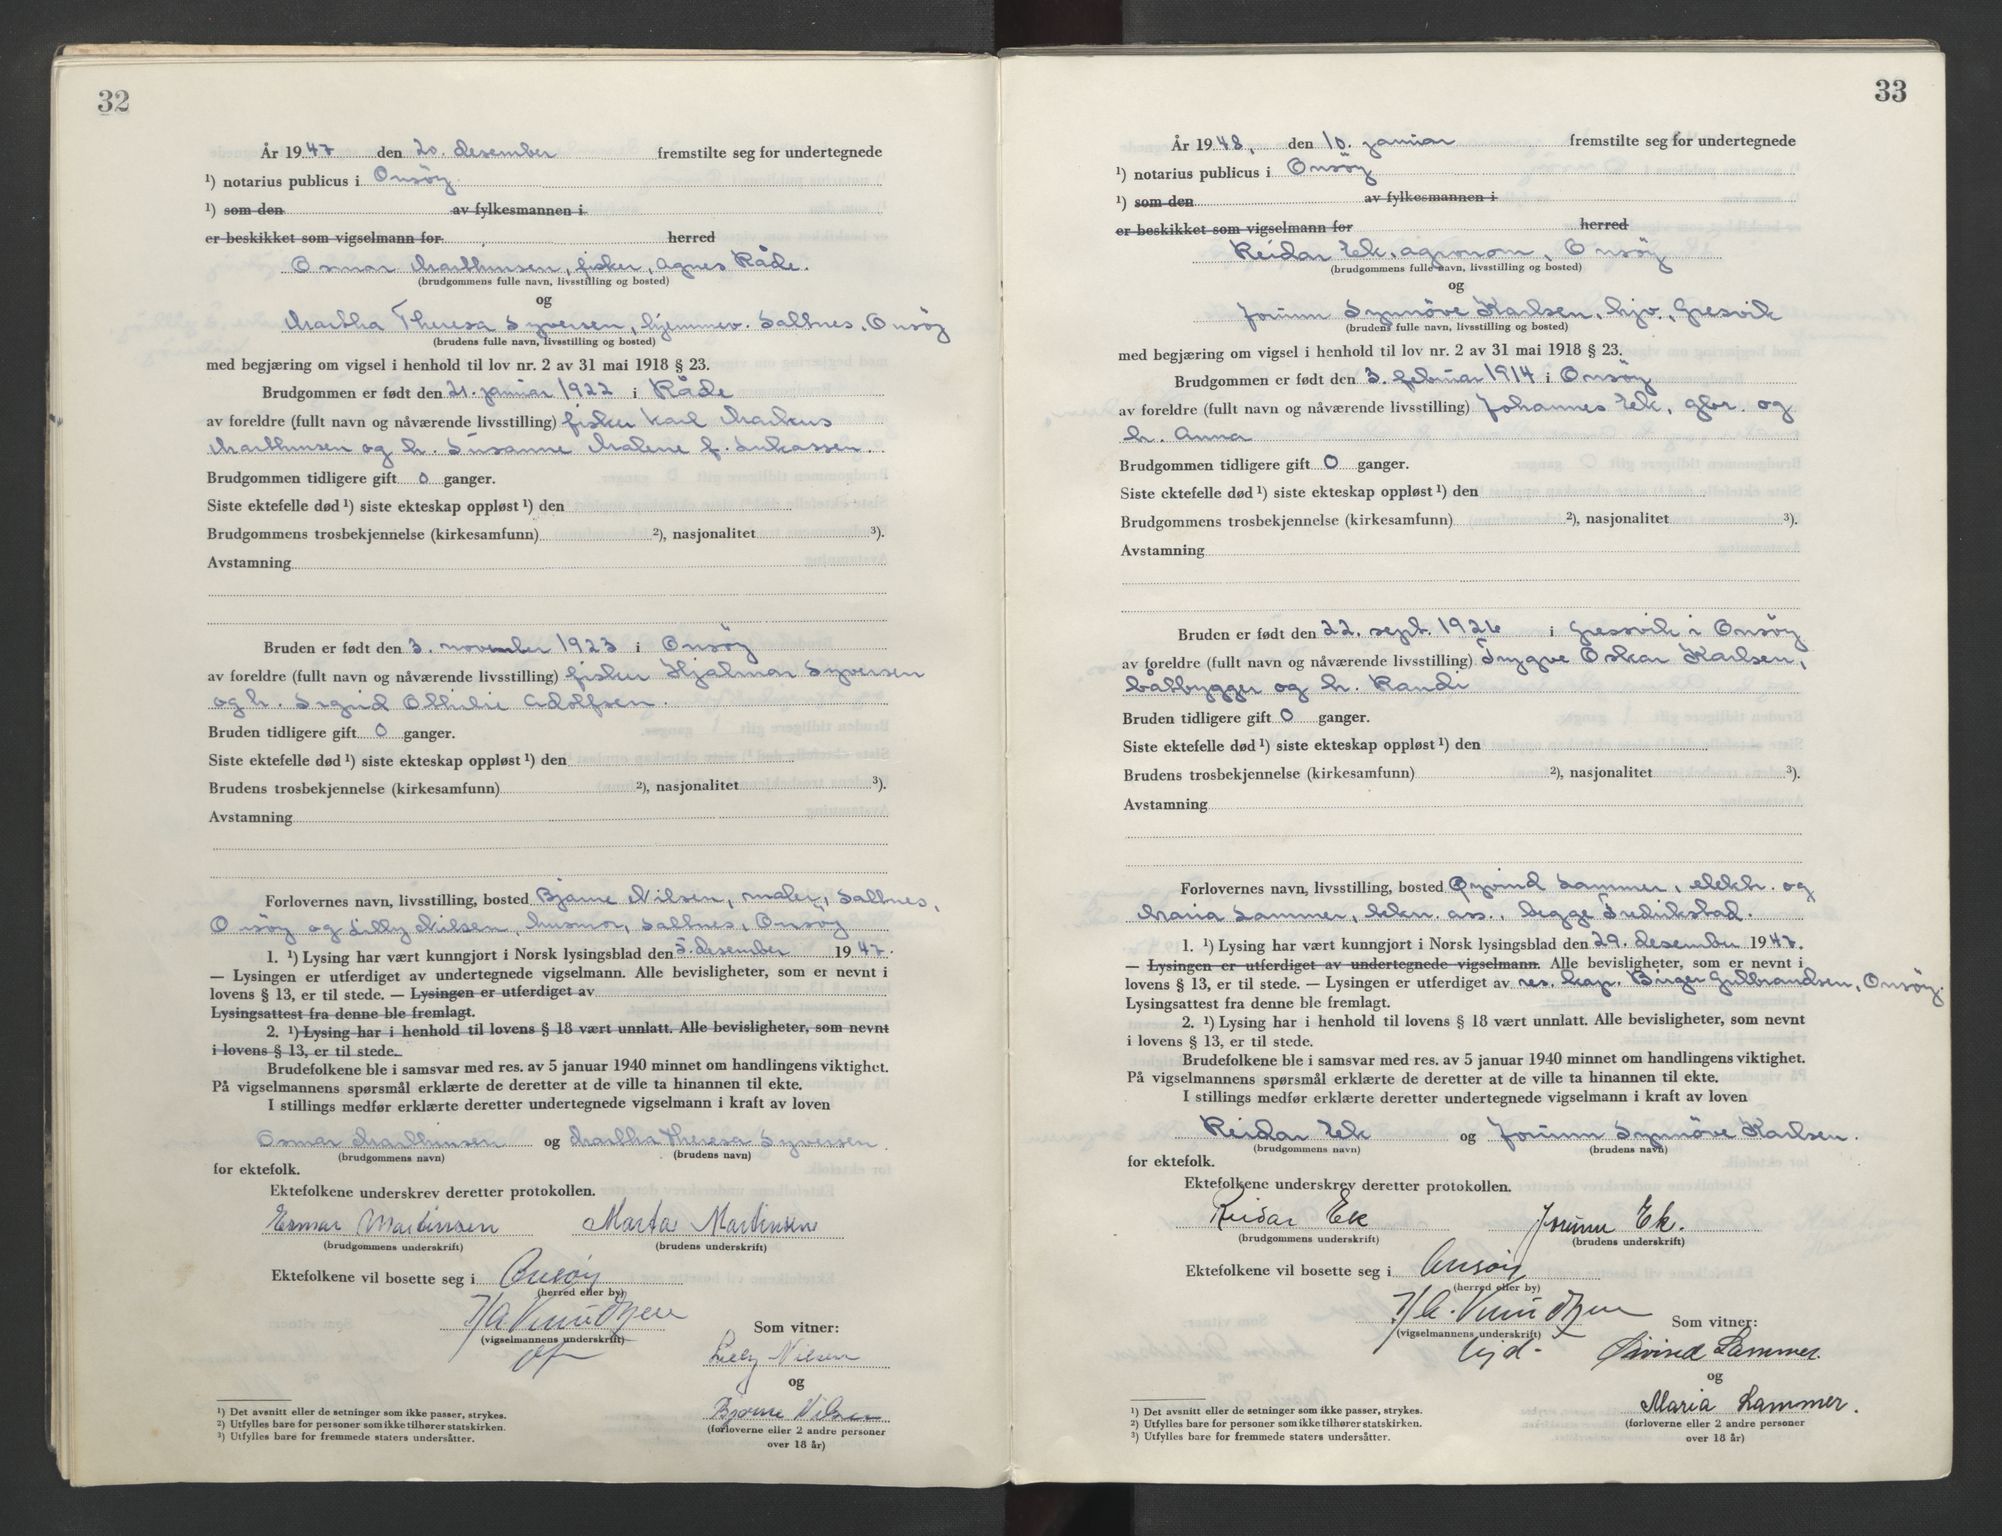 32
År 1947 den 20. desember fremstilte seg for undertegnede
¹) notarius publicus i Onsöy
¹) som den av fylkesmannen i
er beskikket som vigselmann for herred
Osmar Marthinsen, fisker, Agnes Råde.
(brudgommens fulle navn, livsstilling og bosted)
og
Martha Theresa Syversen, hjemmev. Saltnes, Onsöy
(brudens fulle navn, livsstilling og bosted)
med begjæring om vigsel i henhold til lov nr. 2 av 31 mai 1918 § 23.
Brudgommen er født den 21. januar 1922 i Råde
av foreldre (fullt navn og nåværende livsstilling) fisker Karl Markus
Marthinsen og h. Susanne Malene f. Lukassen.
Brudgommen tidligere gift 0 ganger.
Siste ektefelle død¹) siste ekteskap oppløst¹) den
Brudgommens trosbekjennelse (kirkesamfunn) ²), nasjonalitet ³).
Avstamning
Bruden er født den 3. november 1923 i Onsöy
av foreldre (fullt navn og nåværende livsstilling) fisker Hjalmar Syversen
og h. Sigrid Othilie Adolfsen.
Bruden tidligere gift 0 ganger.
Siste ektefelle død¹) siste ekteskap oppløst¹) den
Brudens trosbekjennelse (kirkesamfunn) ²), nasjonalitet ³).
Avstamning
Forlovernes navn, livsstilling, bosted Bjarne Nilsen, maler, Saltnes,
Onsöy og Lilly Nilsen, husmor, Saltnes, Onsöy
1. ¹) Lysing har vært kunngjort i Norsk lysingsblad den 5. desember 1947.
— Lysingen er utferdiget av undertegnede vigselmann. Alle bevisligheter, som er nevnt i
lovens § 13, er til stede. — Lysingen er utferdiget av
Lysingsattest fra denne ble fremlagt.
2. ¹) Lysing har i henhold til lovens § 18 vært unnlatt. Alle bevisligheter, som nevnt
i lovens § 13, er til stede.
Brudefolkene ble i samsvar med res. av 5 januar 1940 minnet om handlingens viktighet.
På vigselmannens spørsmål erklærte de deretter at de ville ta hinannen til ekte.
I stillings medfør erklærte deretter undertegnede vigselmann i kraft av loven
Osmar Marthinsen og Martha Theresa Syversen
(brudgommens navn) (brudens navn)
for ektefolk.
Ektefolkene underskrev deretter protokollen.
Esmar Martinsen Marta Martinsen
(brudgommens underskrift) (brudens underskrift)
Ektefolkene vil bosette seg i Onsöy
(herred eller by)
H A Knudtzen
(vigselmannens underskrift) Som vitner:
Lilly Nilsen
og
Bjarne Nilsen
(forloverne eller 2 andre personer
over 18 år)
¹) Det avsnitt eller de setninger som ikke passer, strykes.
²) Utfylles bare for personer som ikke tilhører statskirken.
³) Utfylles bare for fremmede staters undersåtter.
33
År 1948, den 10. januar fremstilte seg for undertegnede
¹) notarius publicus i Onsöy
¹) som den av fylkesmannen i
er beskikket som vigselmann for herred
Reidar Ek, agronom, Onsöy
(brudgommens fulle navn, livsstilling og bosted)
og
Jorunn Synnöve Karlsen, hjv., Gresvik
(brudens fulle navn, livsstilling og bosted)
med begjæring om vigsel i henhold til lov nr. 2 av 31 mai 1918 § 23.
Brudgommen er født den 3. februar 1914 i Onsöy
av foreldre (fullt navn og nåværende livsstilling) Johannes Ek, gbr. og
h. Anna
Brudgommen tidligere gift 0 ganger.
Siste ektefelle død¹) siste ekteskap oppløst¹) den
Brudgommens trosbekjennelse (kirkesamfunn) ²), nasjonalitet ³).
Avstamning
Bruden er født den 22. sept. 1926 i Gressvik i Onsöy
av foreldre (fullt navn og nåværende livsstilling) Trygve Oskar Karlsen,
båtbygger og h. Randi
Bruden tidligere gift 0 ganger.
Siste ektefelle død¹) siste ekteskap oppløst¹) den
Brudens trosbekjennelse (kirkesamfunn) ²), nasjonalitet ³).
Avstamning
Forlovernes navn, livsstilling, bosted Øyvind Lammer, elektr. og
Maria Lammer, ass., begge Fredrikstad.
1. ¹) Lysing har vært kunngjort i Norsk lysingsblad den 29. desember 1947.
— Lysingen er utferdiget av undertegnede vigselmann. Alle bevisligheter, som er nevnt i
lovens § 13, er til stede. — Lysingen er utferdiget av res. kap. Birger Gulbrandsen, Onsöy.
Lysingsattest fra denne ble fremlagt.
2. ¹) Lysing har i henhold til lovens § 18 vært unnlatt. Alle bevisligheter, som nevnt
i lovens § 13, er til stede.
Brudefolkene ble i samsvar med res. av 5 januar 1940 minnet om handlingens viktighet.
På vigselmannens spørsmål erklærte de deretter at de ville ta hinannen til ekte.
I stillings medfør erklærte deretter undertegnede vigselmann i kraft av loven
Reidar Ek og Jorunn Synnöve Karlsen.
(brudgommens navn) (brudens navn)
for ektefolk.
Ektefolkene underskrev deretter protokollen.
Reidar Ek Jorunn Ek.
(brudgommens underskrift) (brudens underskrift)
Ektefolkene vil bosette seg i Onsöy
(herred eller by)
H A. Knudtzen
(vigselmannens underskrift) Som vitner:
Øivind Lammer.
og
Maria Lammer.
(forloverne eller 2 andre personer
over 18 år)
¹) Det avsnitt eller de setninger som ikke passer, strykes.
²) Utfylles bare for personer som ikke tilhører statskirken.
³) Utfylles bare for fremmede staters undersåtter.